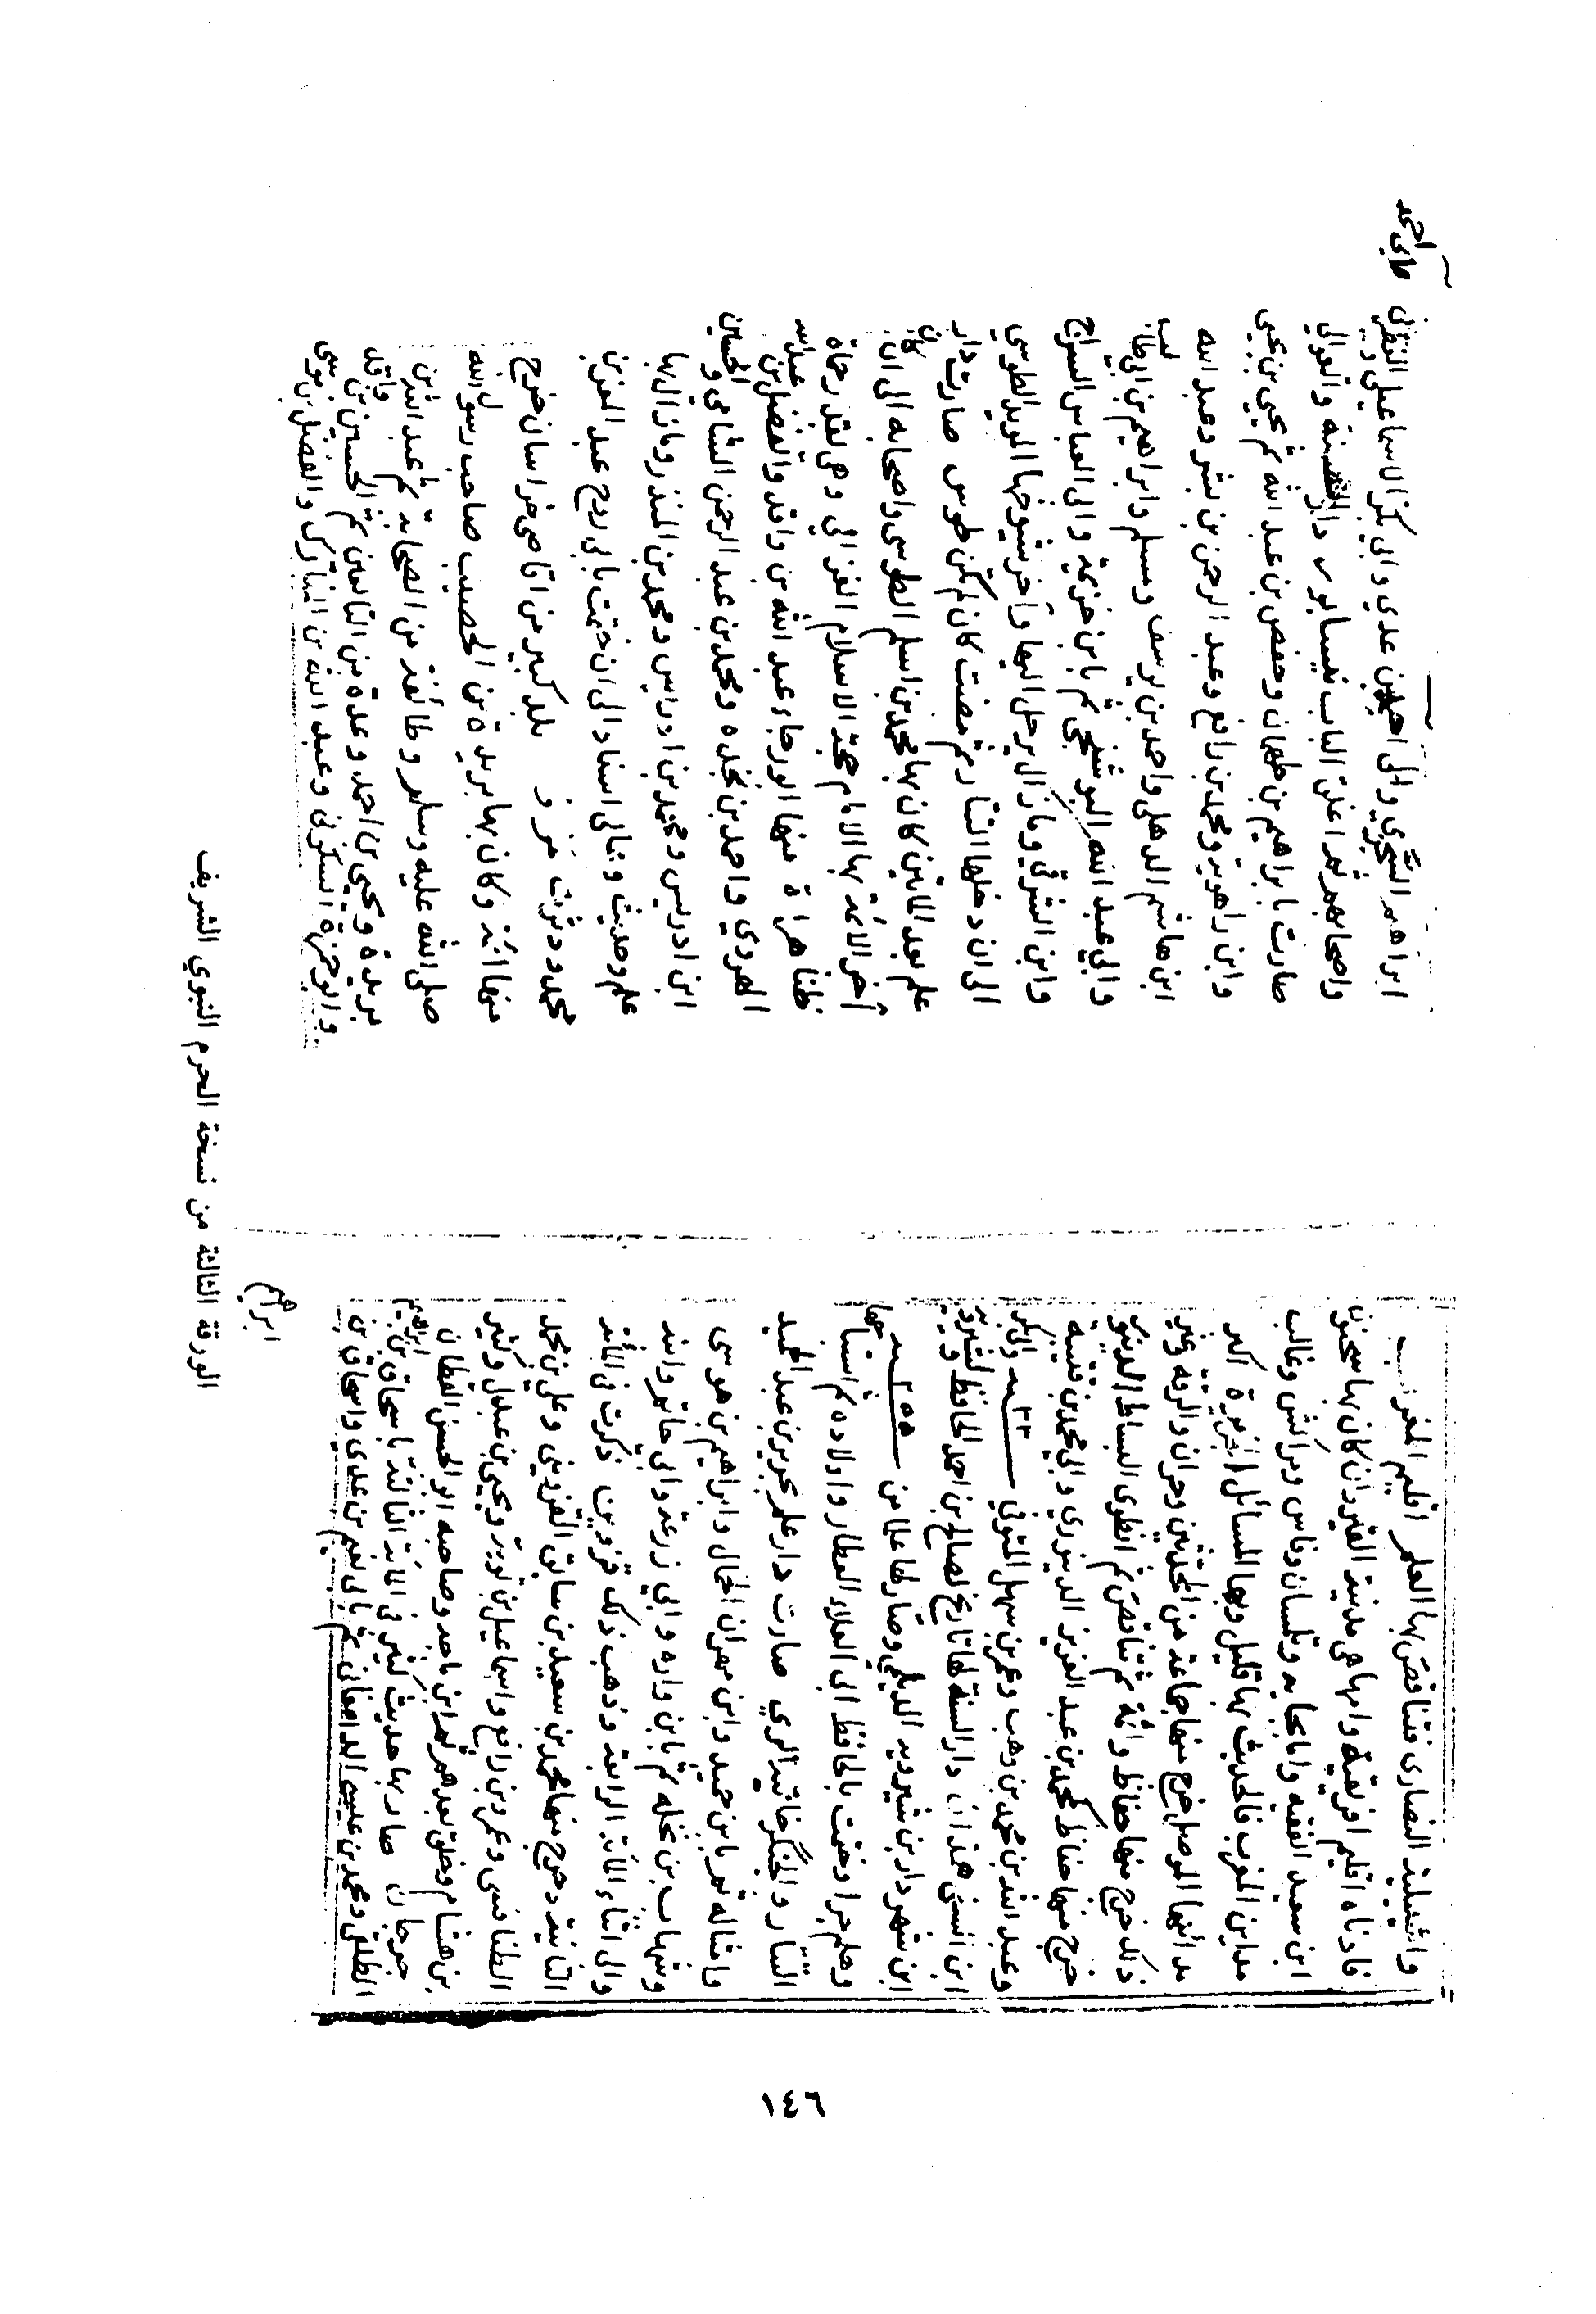 واشبيلية النصارى فتناقص بها العلم اقليم المغرب
فادناه اقليم افريقية وامها هي مدينة القيروان كان بها سحنون
ابن سعيد الفقيه واما بجايه وتلمسان وفاس ومراكش وغالب
مداين المغرب فالحديث بها قليل وبها المسائل الجزيرة اكبر
مدائنها الموصل خرج منها جماعة من المحدثين وحران والرقة وغير
ذلك خرج منها حفاظ وائمة ثم تناقص ثم انطوى البساط الدينور
خرج منها حفاظ كمحمد بن عبد العزيز الدينوري وابي محمد بن قتيبة
وعبد الله بن محمد بن وهب وعمر بن سهل المتوفي ٣٣ سنه وابي بكر
ابن السني همذان دار السنة لها تاريخ لصالح بن احمد الحافظ ولشيرويه
ابن شهردار بن شيرويه الديلمي وصار لها علما من ٢٥٥ سنه
وهلم جرا وختمت بالحافظ ابي العلاء العطار واولاده ثم استباحها
التتار والجنكزخانية الري صارت دار علم بجرير بن عبد الحميد
وامثاله ثم بابن حميد وابن مهران الجمال وابراهيم بن موسى
وشهاب بن نخله ثم بابن واره وابي زرعة وابي حاتم وابنه
والى اثناء المائة الرابعة وذهب ذلك قزوين ذكرت في المائة
الثانية وخرج منها محمد بن سعيد بن سابق القزويني وعلي بن محمد
الطنافسي وعمرو بن رافع واسماعيل بن توبة ويحيى بن عبدك وكثير
بن هشام وخلق بعدهم ثم ابن ماجه وصاحبه ابو الحسن القطان
جرجان صار بها حديث كثير في المائة الثالثة باسحاق بن ابراهيم
الطلقي ومحمد بن عيسى الدامغاني ثم بابي نعيم بن عدي واسحاق بن
ابراهيم
ابراهيم السجزي وابي احمد بن عدي وابي بكر الاسماعيلي والغطريفي وابي احمد
واصحابهم ثم اغلق الباب نيسابور دار السنة والعوالي
صارت بابراهيم بن طهمان وحفص بن عبد الله ثم يحيى بن يحيى
وابن راهويه ومحمد بن رافع وعبد الرحمن بن بشر وعبد الله
ابن هاشم الذهلي واحمد بن يوسف ومسلم وابراهيم بن ابي طالب
وابي عبد الله البوشنجي ثم بابن خزيمة وابي العباس السراج
وابن الشرقي وما زال يرحل اليها وآخر شيوخها المويد الطوسي
الى ان دخلها التتار ثم مضت كان لم تكن طوس صارت دار
علم بعد المائتين كان بها محمد بن اسلم الطوسي واصحابه الى ان كان
آخر الائمة بها الامام حجة الاسلام الغزالي وهي بقدر حماة
ظنا هراة منها ابو رجاء عبد الله بن واقد والفضل بن عبد الله
الهروي واحمد بن نجده ومحمد بن عبد الرحمن الشامي والحسين
ابن ادريس ومحمد بن ادريس ومحمد بن المنذر وما زال بها
علم وحديث وعالي اسناد الى ان ختمت بابي روح عبد المعز بن
محمد ودثرت مرو بلد كبير من اقاصي خراسان خرج
منها ائمة وكان بها بريدة بن الحصيب صاحب رسول الله
صلى الله عليه وسلم وطائفة من الصحابة ثم عبد الله بن
بريدة ويحيى بن احمد وعدة من التابعين ثم الحسين بن واقد
وابو حمزة السكري وعبد الله بن المبارك والفضل بن موسى
الورقة الثالثة من نسخة الحرم النبوي الشريف
١٤٦